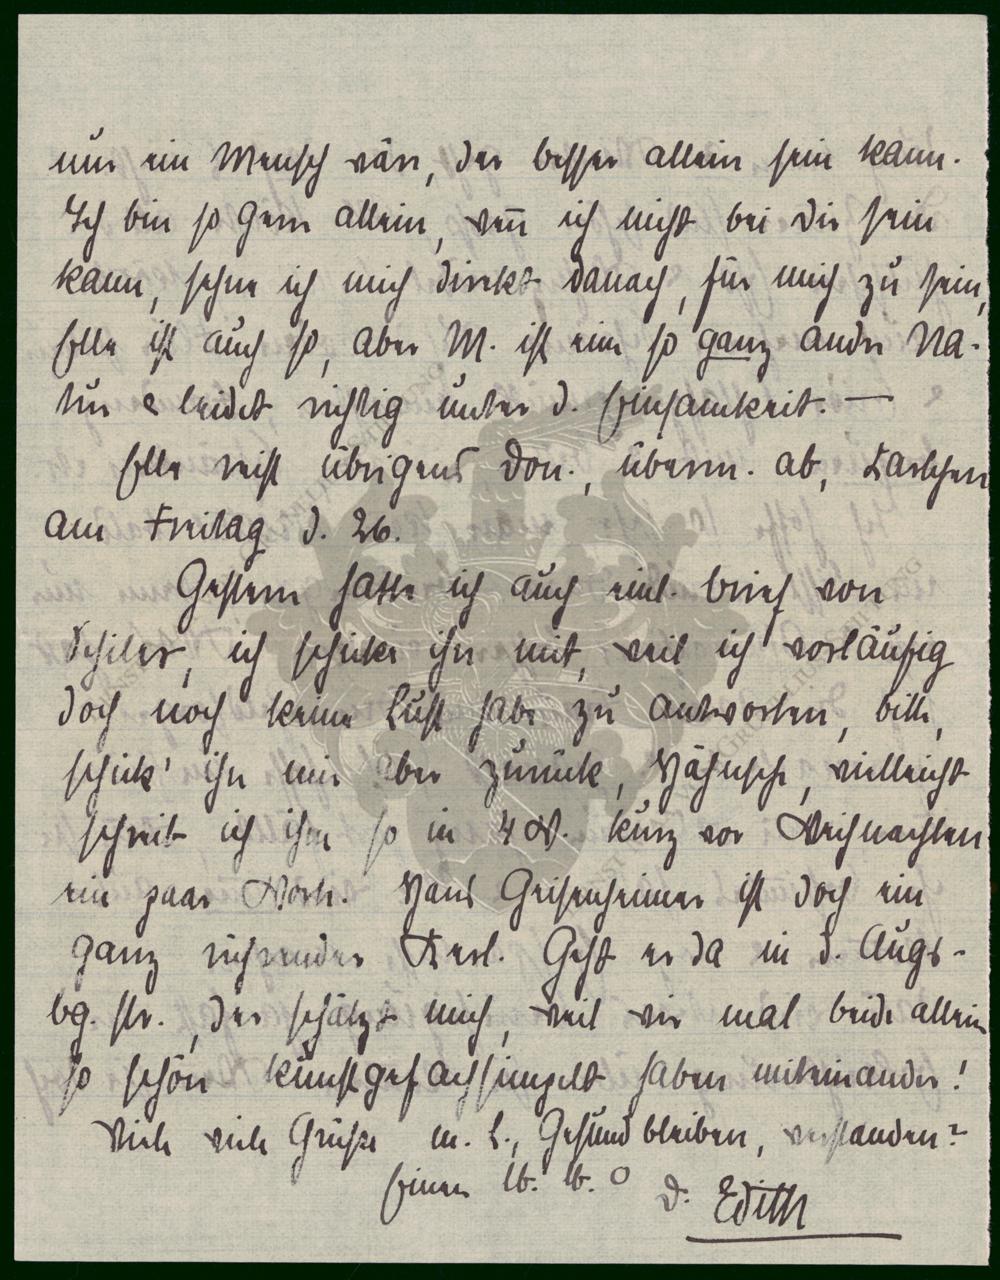 nur ein Mensch wär, der besser allein sein kann.
Ich bin so gern allein, wen̅ ich nicht bei dir sein
kann, sehne ich mich direkt danach, für mich zu sein,
Elle ist auch so, aber M. ist eine so ganz andre Na-
tur & leidet richtig unter d. Einsamkeit. —
Elle reist übrigens Don., überm. ab, Karlchen
am Freitag d. 26.
Gestern hatte ich auch einl. brief von
ich schicke ihn mit, weil ich vorläufig
doch noch keine Lust habe zu antworten, bitte,
schick' ihn mir aber zurück, Hähnsche, vielleicht
schreib ich ihm so in 4 W. kurz vor Weihnachten
ein paar Worte. Hans Geisenheimer ist doch ein
ganz rührender Kerl. Geht er da in d. Augs-
bg. str., der schätzt mich, weil wir mal beide allein
so schön kunstgefachsimpelt haben miteinander!
Viele viele Grüße m. L., Gesund bleiben, verstanden?
Einen lb. lb. o d. Edith